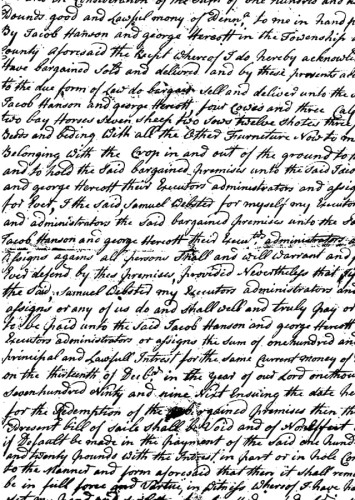 in Consideration of the Sum of one hundred and
Pounds good and Lawful mony of Pennᵃ to me in hand
By Jacob Hanson and george Hercott in the Township
County aforesaid the Rect whereof I do hereby acknowl
Have bargained Sold and delivred and by these presents
to the due form of Law do bargain Sell and delivred unto the
Jacob Hanson and george Hercott four Cowes and three Cal
two bay Horses Seven Sheep two Sows twelve Shotes three
Beds and beding With all the Other Furneture Now
Belonging With the Crop in and out of the ground to
and to hold the Said bargained premises unto the Said
and george Hercott their Executors administrators and assign
for Ever, I the Said Samuel Websted for myself my Executor
and administrators the Said bargained premises unto the
Jacob Hanson and george Hercott their Execᵗʳˢ administrators
assigns agains all persons Shall and will Warrant and
Ever defend by this presents, provided Nevertheless that
the Said Samuel Websted my Executors administrators and
assigns or any of us do and Shall well and truly pay or
to be paid unto the Said Jacob Hanson and george Hercott
Executors administrators or assigns the Sum of one hundred an
principal and Lawfull Interest for the Same Current money of
on the thirteenth of Decbʳ in the year of our Lord onethou
Sevenhundred Ninty and nine Next Ensuing the date he
for the Redemption of the bargained premises then th
Present bill of Saile Shall be Void and of Non Effect
if Default be made in the payment of the Said one hund
and twenty Pounds With the Interest in part or in hole Co
to the Manner and form aforesaid that then it Shall rem
be in full force and Virtue in Witness Whereof I have